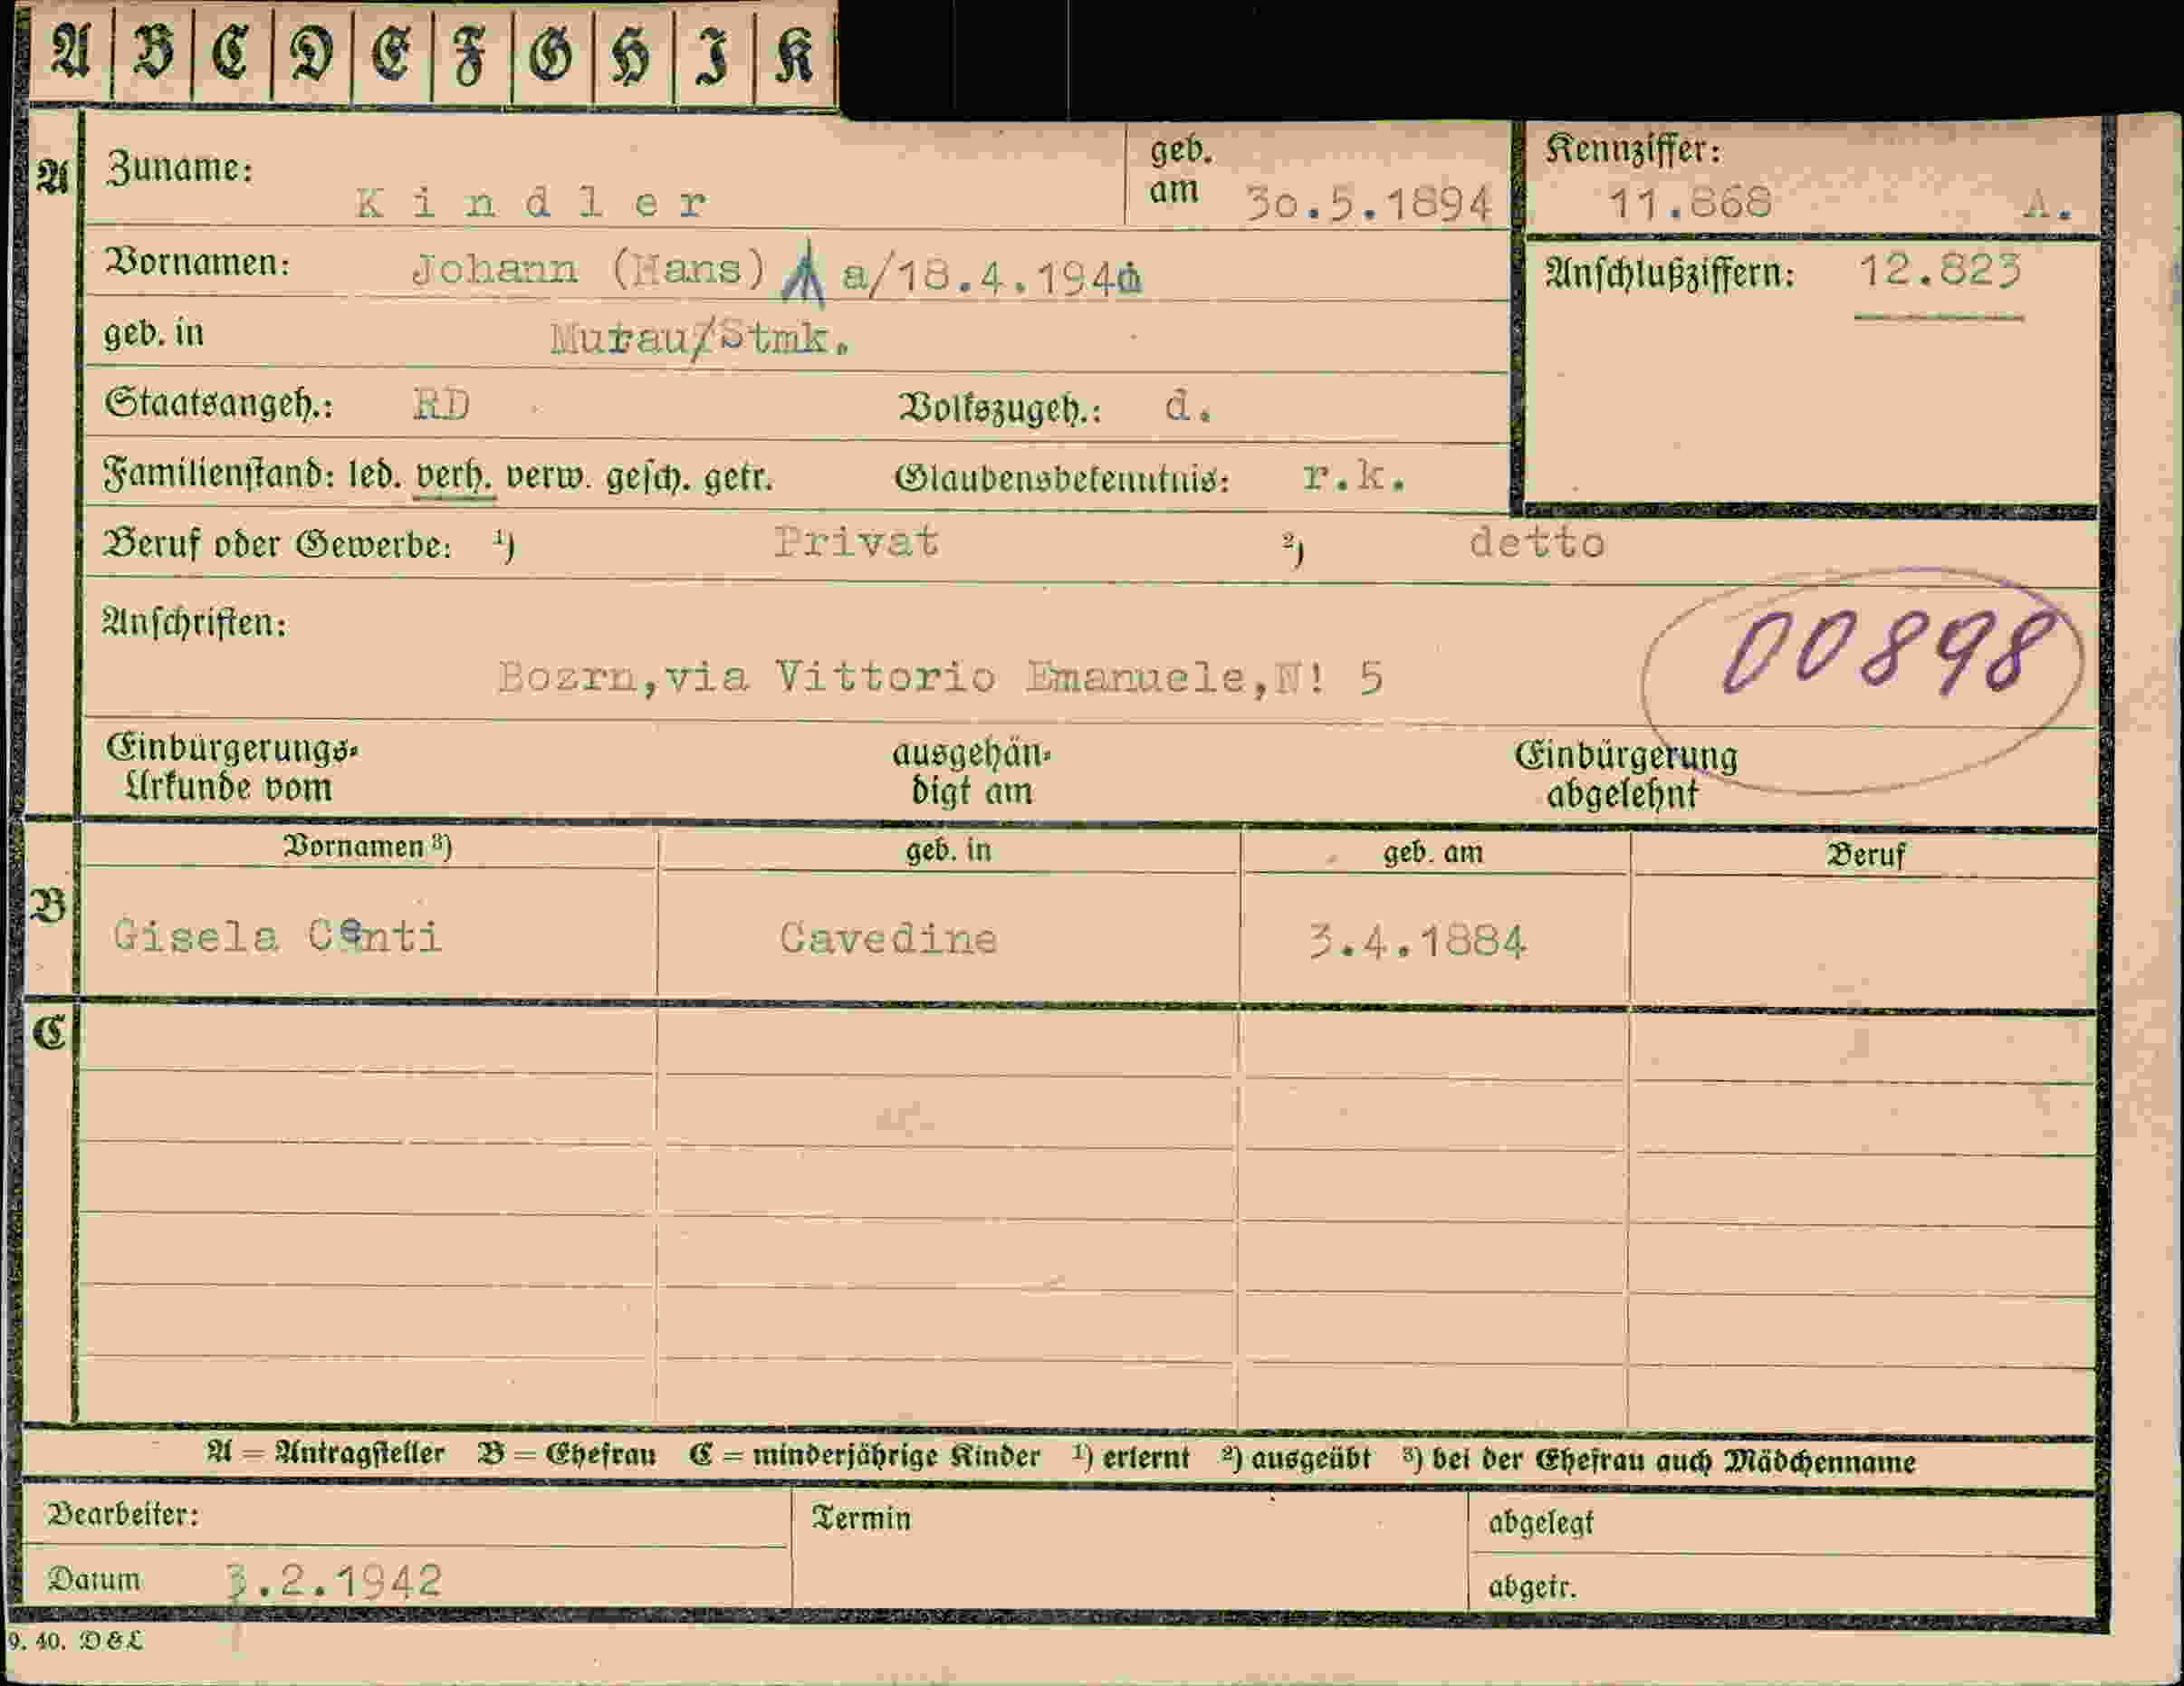 A B C D E F G H I K
A Zuname: Kindler geb. am 30.5.1894 Kennziffer: 11.868 A.
Vornamen: Johann (Hans) a/18.4.194 Anschlußziffern: 12.823
geb. in Murau/Stmk.
Staatsangeh.: RD Volkszugeh.: d.
Familienstand: led. verh. verw. gesch. getr. Glaubensbekenntnis: r.k.
Beruf oder Gewerbe: ¹) Privat ²) detto
Anschriften:
00898
Bozrn,via Vittorio Emanuele,N! 5
Einbürgerungs-Urkunde vom ausgehändigt am Einbürgerung abgelehnt
Vornamen ³) geb. in geb. am Beruf
B Gisela Centi Cavedine 3.4.1884
C
A = Antragsteller B = Ehefrau C = minderjährige Kinder ¹) erlernt ²) ausgeübt ³) bei der Ehefrau auch Mädchenname
Bearbeiter: Termin abgelegt
Datum 3.2.1942 abgetr.
9. 40. D&L